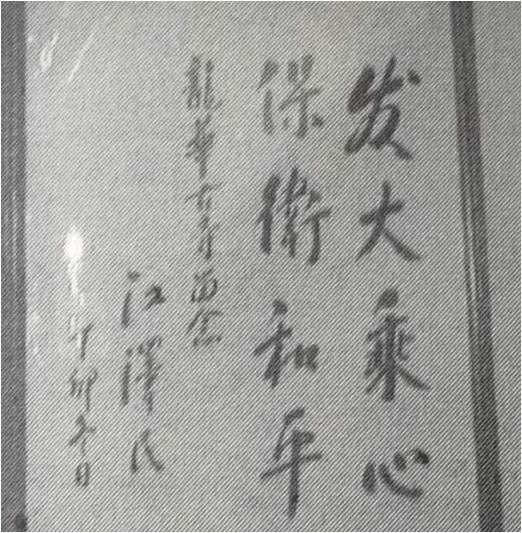 发大乘心
保衛和平
龍華古寺留念
江澤民